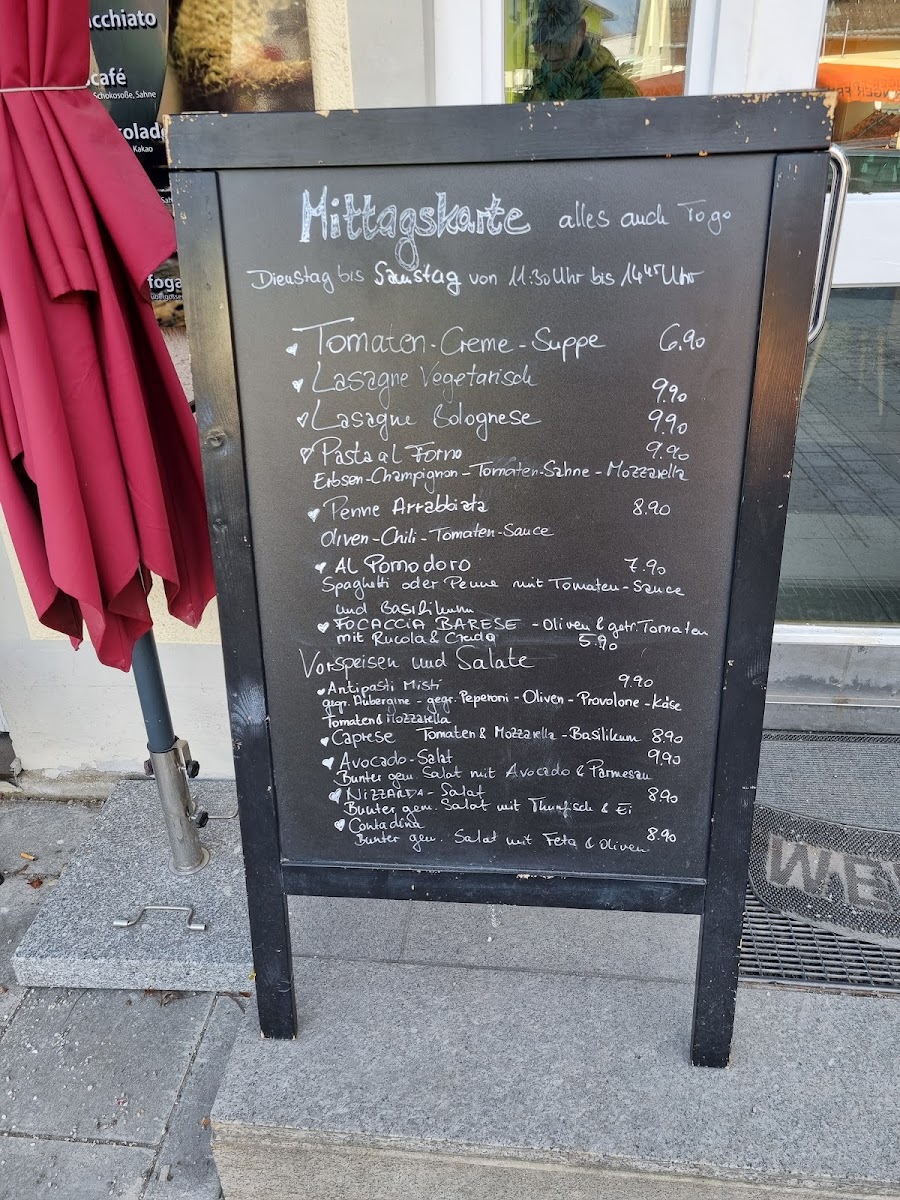 cchiato
café
Schokosoße, Sahne
kolad
Kakao
foga
Mittagskarte alles auch To go
Dienstag bis Samstag von 11:30 Uhr bis 14 45 Uhr
Tomaten-Creme-Suppe 6.90
Lasagne Vegetarisch 9.90
Lasagne Bolognese 9.90
Pasta al Forno 9.90
Erbsen-Champignon-Tomaten-Sahne-Mozzarella
Penne Arrabbiata 8.90
Oliven-Chili-Tomaten-Sauce
Al Pomodoro 7.90
Spaghetti oder Penne mit Tomaten-Sauce
und Basilikum
FOCACCIA BARESE - Oliven & getr. Tomaten
mit Rucola & Cruda 5.90
Vorspeisen und Salate
Antipasti Misti 9.90
gegr. Aubergine - gegr. Peperoni - Oliven - Provolone-Käse
Tomaten & Mozzarella
Caprese Tomaten & Mozzarella - Basilikum 8.90
Avocado-Salat 9.90
Bunter gem. Salat mit Avocado & Parmesan
NIZZARDA-Salat 8.90
Bunter gem. Salat mit Thunfisch & Ei
Contadina 8.90
Bunter gem. Salat mit Feta & Oliven